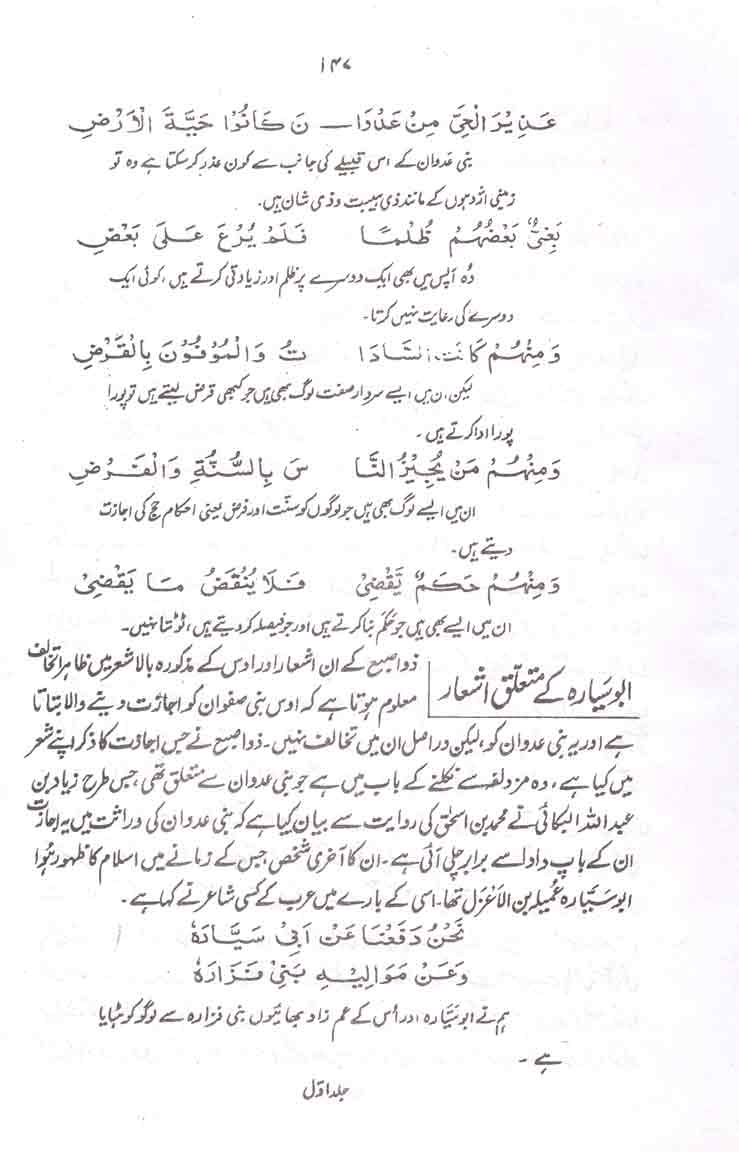 ۱۴۷
عَذِیْرَ الْحَیِّ مِنْ عَدْوَا — نَ کَانُوْا حَیَّةَ الْاَرْضِ
بنی عدوان کے اس قبیلے کی جانب سے کون عذر کرسکتا ہے وہ تو
زمینی اژدہوں کے مانند ذی ہیبت و ذی شان ہیں۔
بَغٰیٌ بَعْضُهُمْ ظُلْمًا فَلَمْ یُرْعَ عَلٰی بَعْضِ
وُہ آپس میں بھی ایک دوسرے پر ظلم اور زیادتی کرتے ہیں، کوئی ایک
دوسرے کی رعایت نہیں کرتا۔
وَمِنْهُمْ کَانَتِ السَّادَا تُ وَالْمُوْفُوْنَ بِالْقَرْضِ
لیکن ان میں ایسے سردار صفت لوگ بھی ہیں جو کبھی قرض لیتے ہیں تو پورا
پورا ادا کرتے ہیں۔
وَمِنْهُمْ مَنْ یُجِیْزُ النَّا سَ بِالسُّنَّةِ وَالْفَرْضِ
ان میں ایسے لوگ بھی ہیں جو لوگوں کو سنّت اور فرض یعنی احکام حج کی اجازت
دیتے ہیں۔
وَمِنْهُمْ حَکَمٌ یَّقْضِیْ فَلَا یُنْقَضُ مَا یَقْضِیْ
ان میں ایسے بھی ہیں جو حَکَم بنا کرتے ہیں اور جو فیصلہ کر دیتے ہیں، ٹوٹتا نہیں۔
ابو سیارہ کے متعلّق اشعار
ذو اصبع کے ان اشعار اور اوس کے مذکورہ بالا شعر میں ظاہرًا تخالف
معلوم ہوتا ہے کہ اوس بنی صفوان کو اجازت دینے والا بتاتا
ہے اور یہ بنی عدوان کو، لیکن در اصل ان میں تخالف نہیں۔ ذو اصبع نے جس اجازت کا ذکر اپنے شعر
میں کیا ہے، وہ مزدلفہ سے نکلنے کے باب میں ہے جو بنی عدوان سے متعلق تھی، جس طرح زیاد بن
عبد اللہ البکائی نے محمد بن اسحٰق کی روایت سے بیان کیا ہے کہ بنی عدوان کی وراثت میں یہ اجازت
ان کے باپ دادا سے برابر چلی آئی ہے۔ ان کا آخری شخص جس کے زمانے میں اسلام کا ظہور ہُوا
ابو سَیّارہ عُمَیلہ بن الْاَعْزَل تھا۔ اسی کے بارے میں عرب کے کسی شاعر نے کہا ہے۔
نَحْنُ دَفَعْنَا عَنْ اَبِیْ سَیَّارَهْ
وَعَنْ مَوَالِیْهِ بَنِیْ فَزَارَهْ
ہم نے ابو سَیّارہ اور اُس کے عم زاد بھائیوں بنی فزارہ سے لوگو کو ہٹایا
ہے۔
جلد اوّل